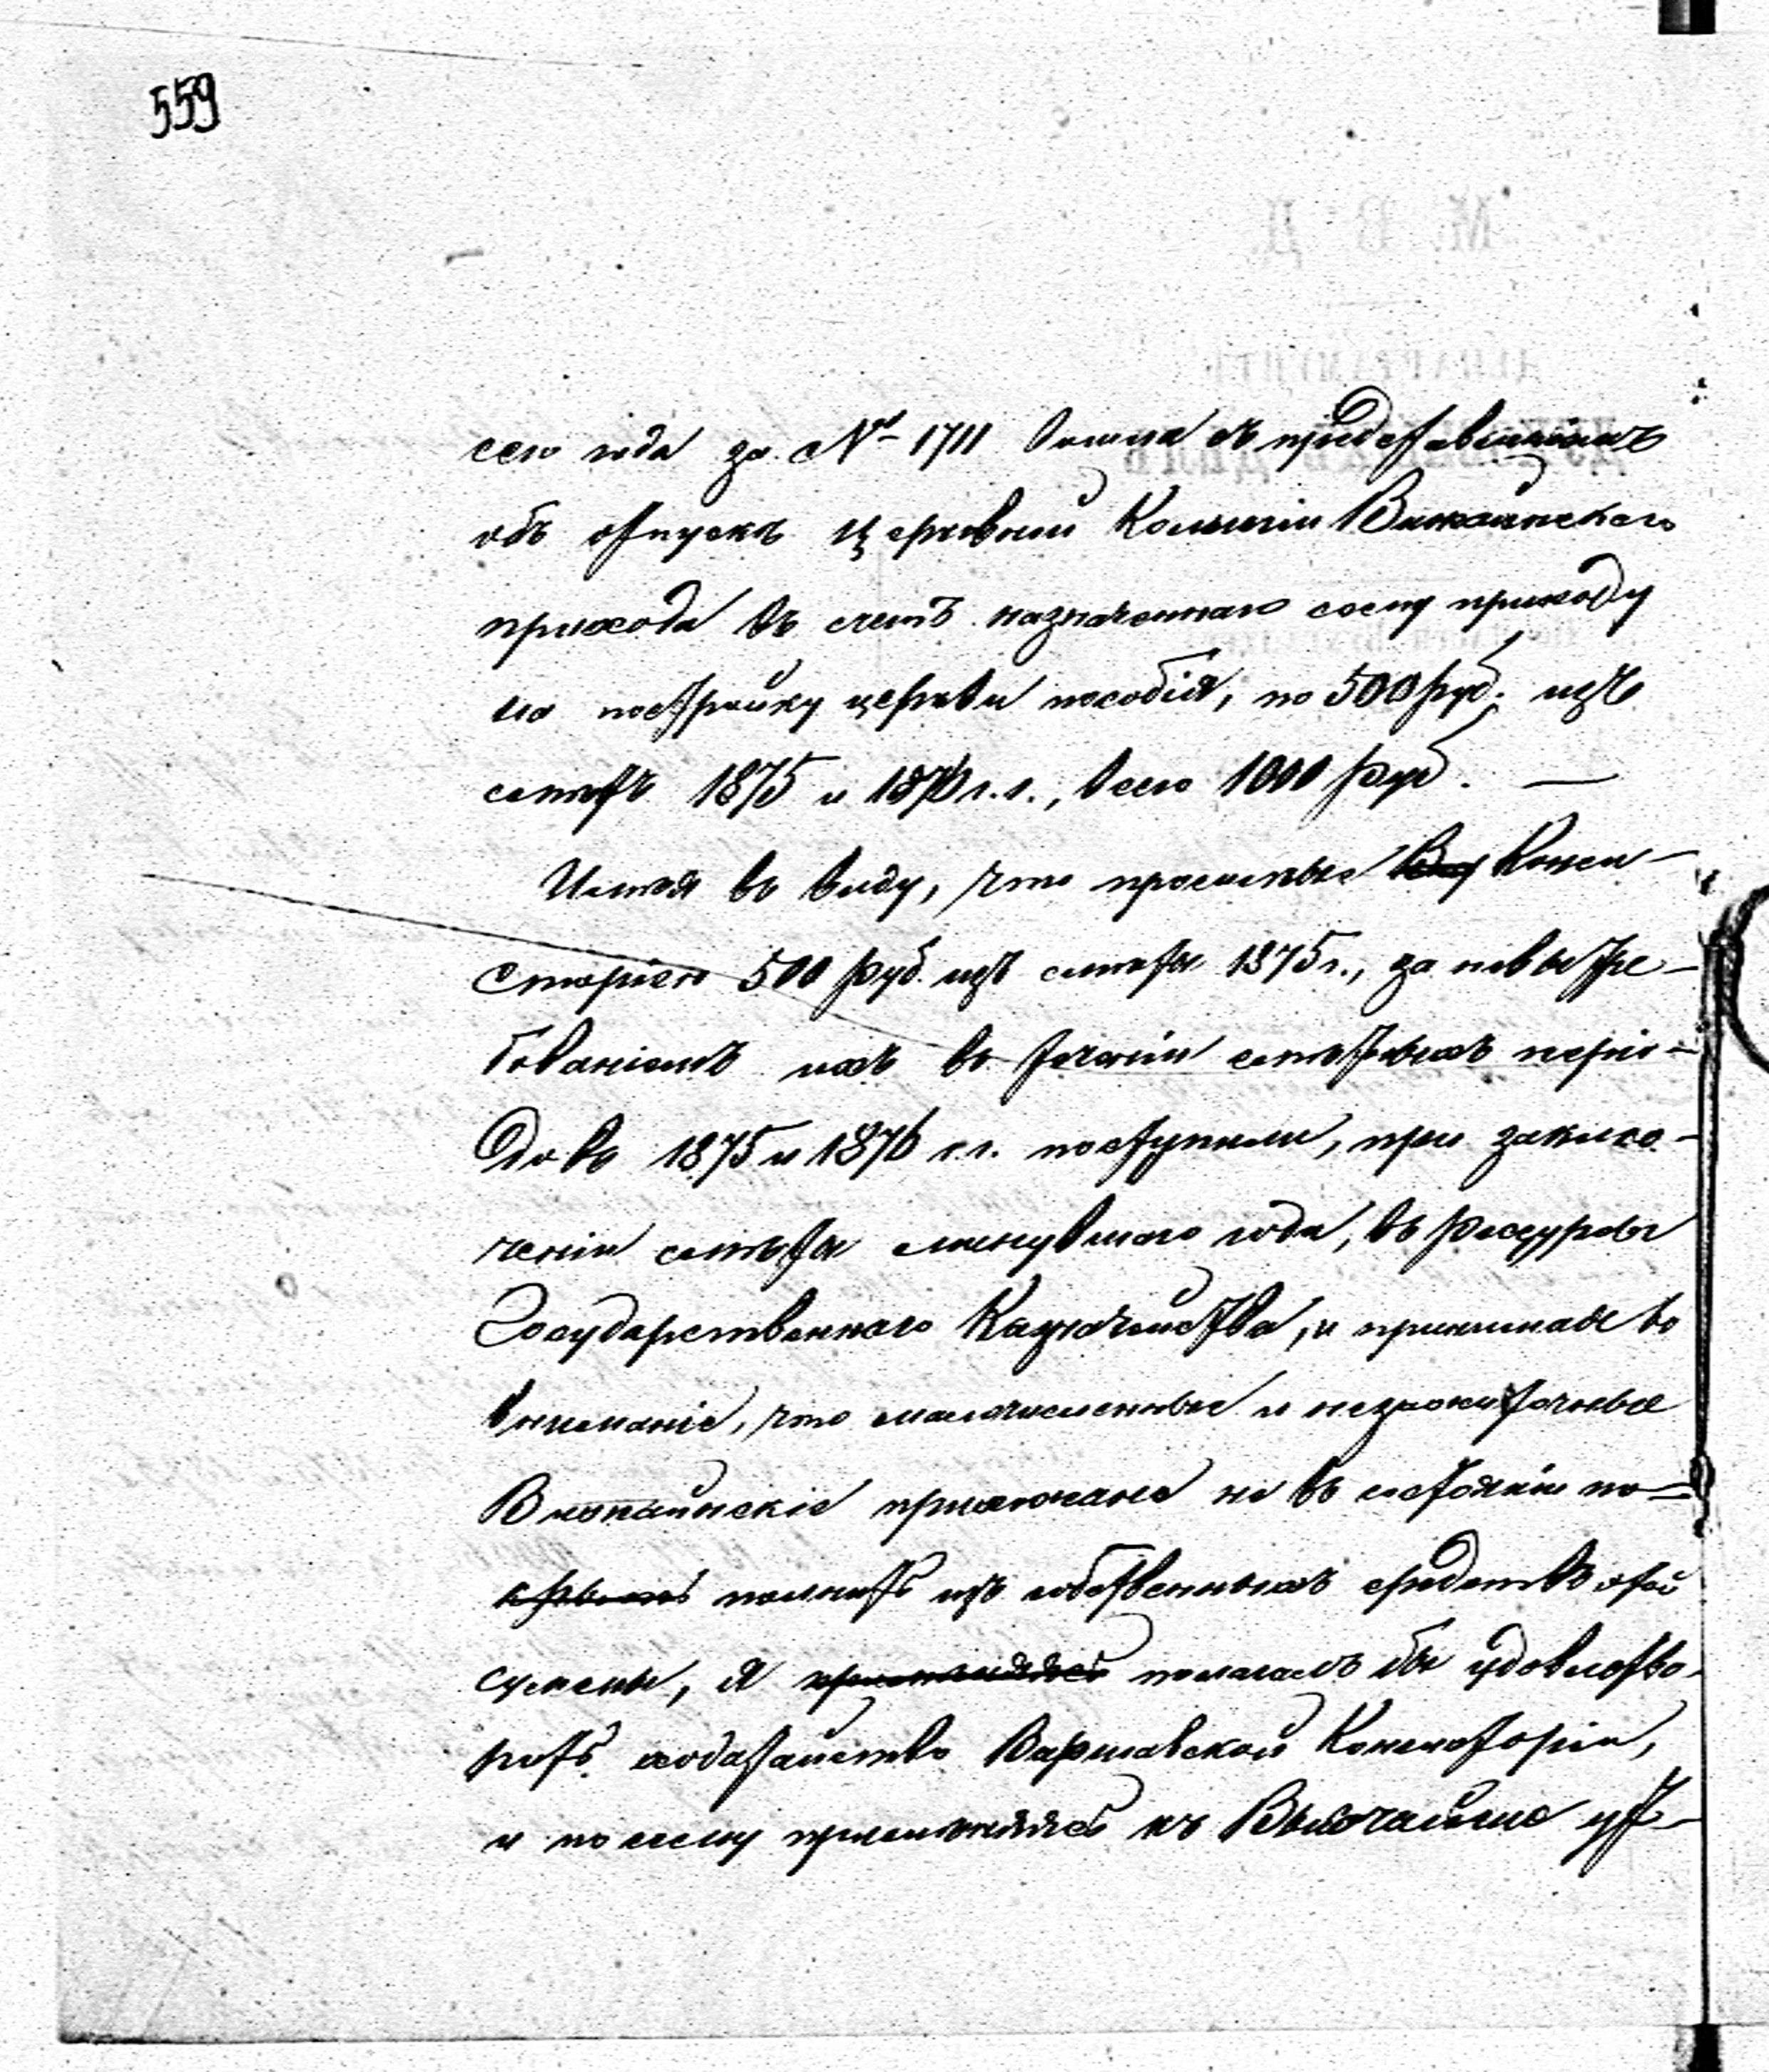 559
сего года за № 1711 вошла съ представленіемъ
объ отпускѣ церковной Коллегіи Вижайнскаго
прихода въ счетъ назначеннаго сему приходу
на постройку церкви пособія, по 500 руб. изъ
смѣтъ 1875 и 1876 г.г., всего 1000 руб. —
Имѣя въ виду, что просимые Конси-
сторіею 500 руб. изъ смѣты 1875 г., за невытре-
бованіемъ ихъ въ теченіи смѣтныхъ періо-
довъ 1875 и 1876 г.г. поступили, при заклю-
ченіи смѣты минувшаго года, въ рессурсы
Государственнаго Казначейства, и принимая во
вниманіе, что малочисленные и незажиточные
Вижайнскіе прихожане не въ состояніи по-
крыть полнить изъ собственныхъ средствъ этой
суммы, я полагалъ бы удовлетво-
рить ходатайство Варшавской Консисторіи,
и по сему примѣняясь къ Высочайше ут-